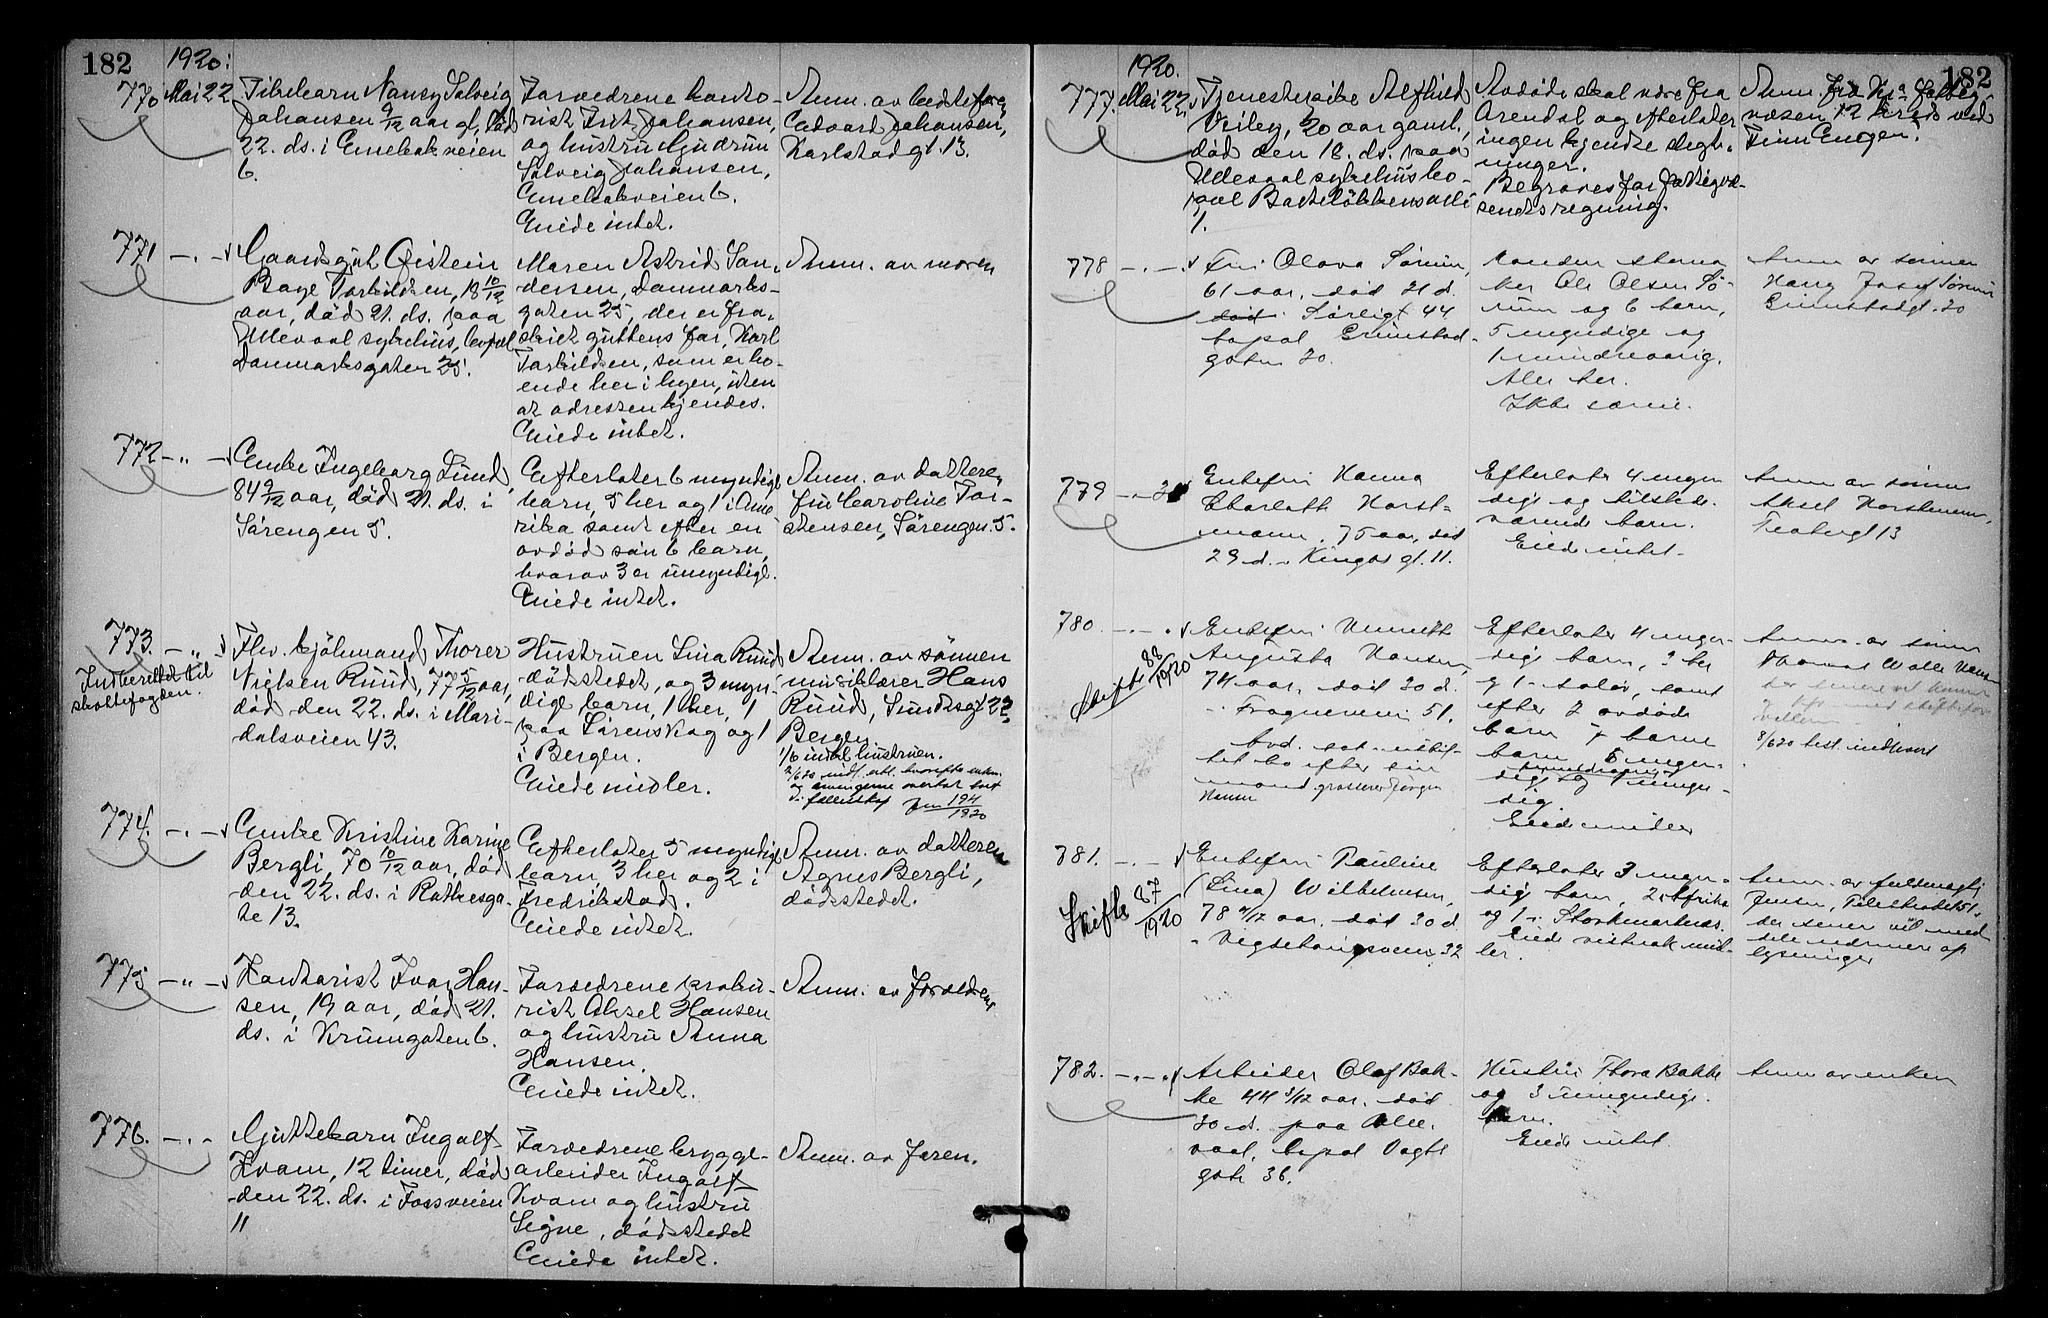 182
1920:
770 Mai 22
Pikebarn Nancy Solveig
Johansen 9/12 aar gl., død
22. ds. i Enebakveien
6.
Forældrene konto-
rist Fritz Johansen,
og hustru Gudrun
Solveig Johansen,
Enebakveien 6.
Eiede intet.
Anm. av bedstefar,
Edvard Johansen,
Karlstadgt. 13.
771 -.-
Gaardsgut Øistein
Torkildsen, 18 10/12
aar, død 21. ds. paa
Ullevaal sykehus, bopæl
Danmarksgaten 25.
Moren Astrid San-
dersen, Danmarks-
gaten 25, der er fra-
skilt guttens far, Karl
Torkildsen, som er bo-
ende her i byen, uten
at adressen kjendes.
Eiede intet.
Anm. av moren
772 -"-
Enke Ingeborg Lund,
84 9/12 aar, død 21. ds. i
Sørengen 5.
Efterlater 6 myndige
barn, 5 her og 1 i Ame
rika samt efter en
avdød søn 6 barn,
hvorav 3 er umyndige.
Eiede intet.
Anm. av datteren
fru Karoline Tor-
stensen, Sørengen 5.
773. -"-
Indberettet til
skattefogden.
Flv. kjølmand Thorer
Nielsen Ruud, 77 5/12 aar,
død den 22. ds. i Mari-
dalsveien 43.
Hustruen Lina Ruud
dødstedet, og 3 myn-
dige barn, 1 her, 1
paa Lørenskog og 1
i Bergen.
Eiede midler.
Anm. av sønnen
musiklærer Hans
Ruud, Sundtsgt 22,
Bergen.
1/6 indk hustruen.
2/6 20 indl. erkl. hvorefter enken
og arvingerne overtok boet
i fællesskap 194/1920
774. -.-
Enke Kristine Karine
Bergli, 70 10/12 aar, død
den 22. ds. i Rathkesga-
te 13.
Efterlater 5 myndige
barn, 3 her og 2 i
Fredrikstad.
Eiede intet.
Anm. av datteren
Agnes Bergli,
dødstedet.
775 -"-
Kontorist Ivar Han-
sen, 19 aar, død 21.
ds. i Krumgaten 6.
Forældrene proku-
rist Aksel Hansen
og hustru Anna
Hansen.
Eiede intet.
Anm. av forældrene
776. -.-
Guttebarn Ingolf
Kvam, 12 timer, død
den 22. ds. i Fossveien
11
Forældrene brygge-
arbeider Ingolf
Kvam og hustru
Signe, dødstedet
Eiede intet.
Anm. av faren.
182
1920.
777. Mai 22
Tjenestepike Alfhild
20 aar gaml.,
død den 18. ds. paa
Ullevaal sykehus bo-
pæl Borteløkkens alle
1.
Avdøde skal være fra
Arendal og efterlater
ingen kjendte slegt-
ninger.
Begraves for fattigvæ-
senets regning.
Anm. fra Kra fattig
væsen 12 kreds ved
Finn Engen.
778 -.-
Fru Olava Sørum,
61 aar, død 21 d.
død i Sørligt 44
bopæl Grimstad-
gaten 20.
Manden
Ole Olsen Sø-
rum og 6 barn,
5 myndige og
1 mindreaarig.
Alle her.
Ikke særeie.
Anm av sønnen
Hans Josef Sørum
Grimstadgt. 20
779 -.-
Enkefru Hanna
Charlotte Horst-
mann, 75 aar, død
23 d. i Kingos gt. 11.
Efterlater 4 myn
dige og tilstede-
værende barn.
Eiede intet.
Anm av sønnen
Aksel Horstmann,
Teatergt 13
780. -.-
Skifte 88/1920
Enkefru
Augusta Hansen,
74 aar, død 20 d.
i Frognerveien 51.
uskif-
tet bo efter sin
mand grosserer Jørgen
Hansen
Efterlater 4 myn-
dige barn, 3 her
og 1 i Solør, samt
efter 2 avdøde
barn 7 barne
barn 5 myn-
dige og 2 umyn-
dig.
Eiede midler
Anm. av sønnen
Thomas Walle Hansen
8/6 20 test. indlevert
781. -.-
Skifte 87/1920
Enkefru Pauline
(Lina) Wilhelmsen,
78 4/12 aar, død 20 d.
i Vogtsveien 32
Efterlater 3 myn-
dige barn, 2 i Afrika
og 1 i Stokmarknes.
Eiede vistnok mid-
ler.
Anm. av fuldmægtig
Jensen,
der senere vil med
dele nærmere op
lysninger
782. -.-
Arbeider Olaf Bak-
ke 44 3/12 aar, død
20 d. paa Ulle-
vaal, bopæl Vogts
gate 36.
Hustru Thora Bakke
og 3 umyndige
barn.
Eiede intet.
Anm av enken